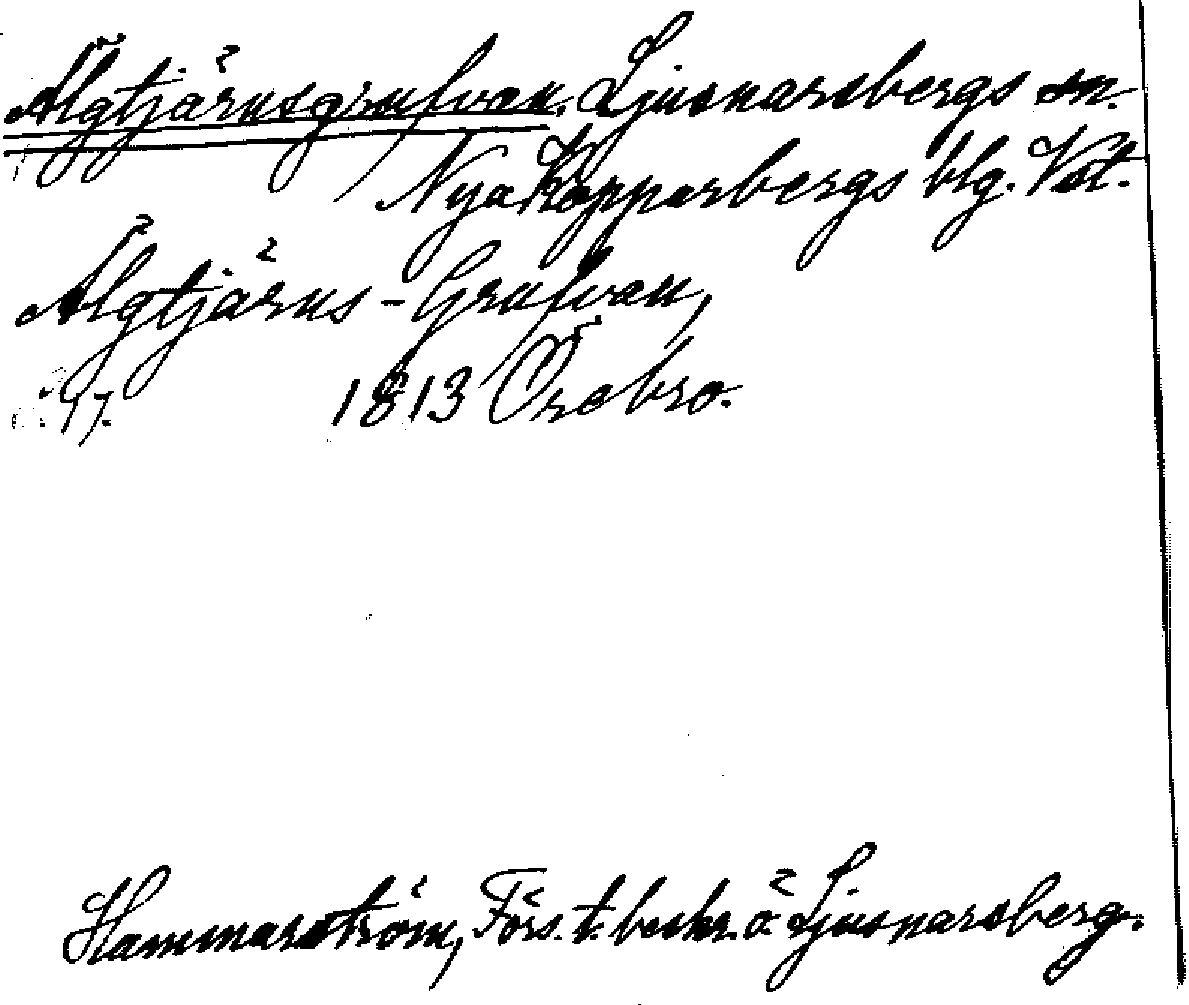 Älgtjärnsgrufvan. Ljusnarsbergs sn.
Nya Kopparbergs blg. Vstl.
Älgtjärns-Grufvan,
1813 Örebro.
Hammarström, Förs. t. beskr. ö. Ljusnarsberg.